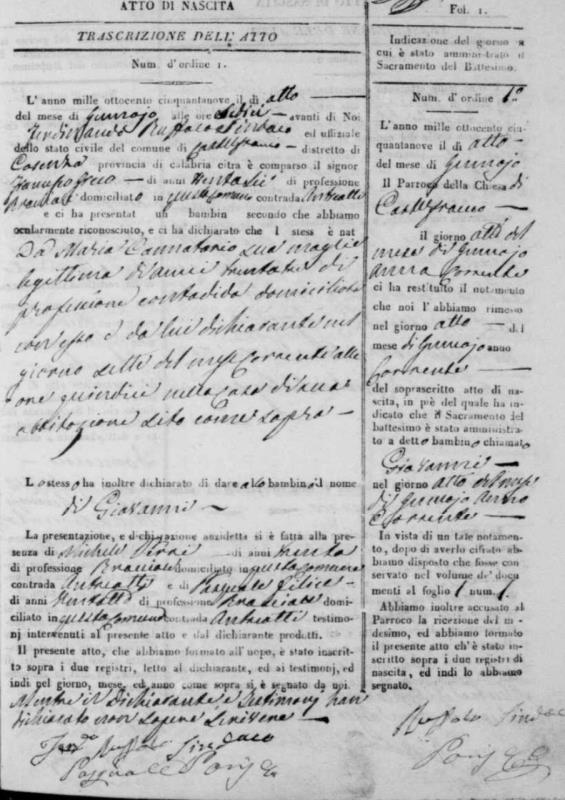 ATTO DI NASCITA
TRASCRIZIONE DELL'ATTO
Num. d'ordine 1.
L'anno mille ottocento cinquantanove il di atto
del mese di Gennajo alle ore sedici avanti di Noi
Ferdinando Ruffolo Sindaco ed uffiziale
dello stato civile del comune di Castelfranco distretto di
Cosenza provincia di calabria citra è comparso il signor
di anni trentasei di professione
domiciliato in questo comune contrada
e ci ha presentat un bambin secondo che abbiamo
ocularmente riconosciuto, e ci ha dichiarato che l stess è nat
Da Maria Cannatario sua moglie
legittima d'anni trentatre di
professione contadida domiciliata
con esso e da lui dichiarante nel
giorno setti del mese corrente alle
ore quindici nella casa di sua
abbitazione sito come sopra
Lo stesso ha inoltre dichiarato di dare allo bambino il nome
di Giovanni
La presentazione, e dichiarazione anzidetta si è fatta alla pre-
senza di Michele di anni trenta
di professione Bracciale domiciliato in questo comune
contrada e di Pasquale Filice
di anni di professione Bracciale domi-
ciliato in questo comune contrada testimo-
nj intervenuti al presente atto e dal dichiarante prodotti.
Il presente atto, che abbiamo formato all'uopo, è stato inscrit-
to sopra i due registri, letto al dichiarante, ed ai testimonj, ed
indi pel giorno, mese, ed anno come sopra si è segnato da noi
Mentre il Dichiarante e Testimonj han
dichiarato non sapere scrivere
Ruffolo Sindaco
Pasquale
Fol. 1.
Indicazione del giorno a
cui è stato amministrato il
Sacramento del Battesimo.
Num. d'ordine 1°
L'anno mille ottocento cin-
quantanove il di atto
del mese di Gennajo
Il Parroco della Chiesa di
Castelfranco
il giorno atti del
mese di Gennajo
anno corrente
ci ha restituito il notamento
che noi l'abbiamo rimesso
nel giorno atto del
mese di Gennajo anno
Corrente
del soprascritto atto di na-
scita, in piè del quale ha in-
dicato che il Sacramento del
battesimo è stato amministra-
to a detto bambino chiamato
Giovanni
nel giorno atto del mese
di Gennajo Anno
Corrente
In vista di un tale notamen-
to, dopo di averlo cifrato ab-
biamo disposto che fosse con-
servato nel volume de' docu-
menti al foglio 1 num. 1.
Abbiamo inoltre accusato al
Parroco la ricezione del me-
desimo, ed abbiamo formato
il presente atto ch'è stato in-
scritto sopra i due registri di
nascita, ed indi lo abbiamo
segnato.
Ruffolo Sindaco